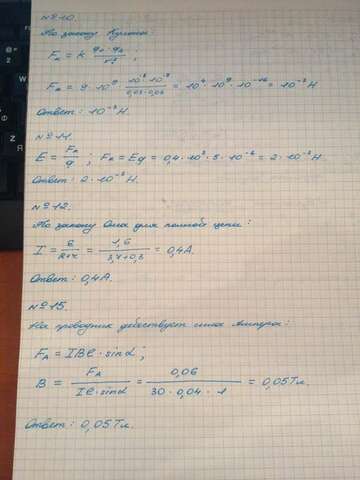 №10.
По закону Кулона:
Fк = k q₁·q₂/r² ;
Fк = 9·10⁹ · 10⁻⁸·10⁻⁸/0,03·0,03 = 10⁴·10⁹·10⁻¹⁶ = 10⁻³ Н
Ответ: 10⁻³ Н.
№11.
E = Fк/q ; Fк = Eq = 0,4·10³·5·10⁻⁶ = 2·10⁻³ Н.
Ответ: 2·10⁻³ Н.
№12.
По закону Ома для полной цепи:
I = ε/R+r = 1,6/3,7+0,3 = 0,4 А.
Ответ: 0,4 А.
№15.
На проводник действует сила Ампера:
FА = IBℓ·sinα ;
B = FА/Iℓ·sinα = 0,06/30·0,04·1 = 0,05 Тл.
Ответ: 0,05 Тл.